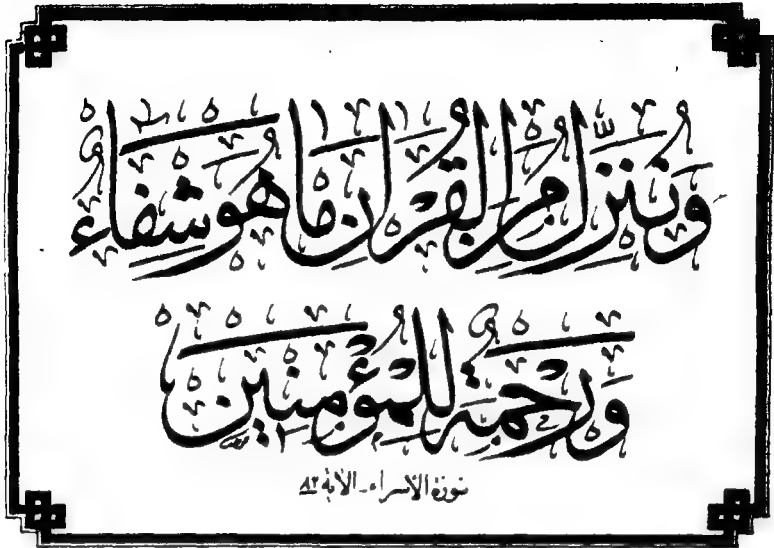 وَنُنَزِّلُ مِنَ الْقُرْآنِ مَا هُوَ شِفَاءٌ
وَرَحْمَةٌ لِلْمُؤْمِنِينَ
سورة الإسراء - الآية ٨٢